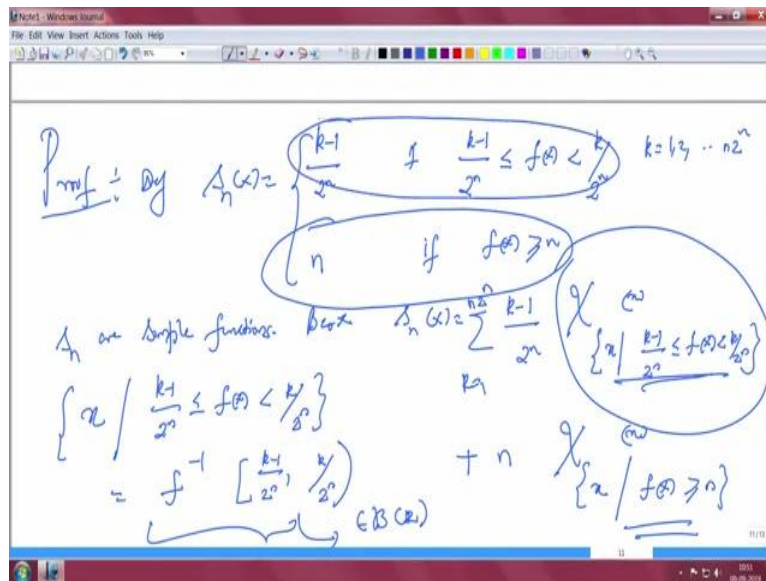 Note1 - Windows Journal
File Edit View Insert Actions Tools Help
Proof : Def s_n(x) = { (k-1)/2^n if (k-1)/2^n ≤ f(x) < k/2^n k=1,2, ... n2^n
n if f(x) ≥ n
s_n are simple functions. s_n(x) = ∑_{k=1}^{n2^n} (k-1)/2^n χ_{x | (k-1)/2^n ≤ f(x) < k/2^n} (x)
{x | (k-1)/2^n ≤ f(x) < k/2^n}
+ n χ_{x | f(x) ≥ n} (x)
= f^{-1} [(k-1)/2^n, k/2^n)
∈ B(R)
11
11/13
10:51